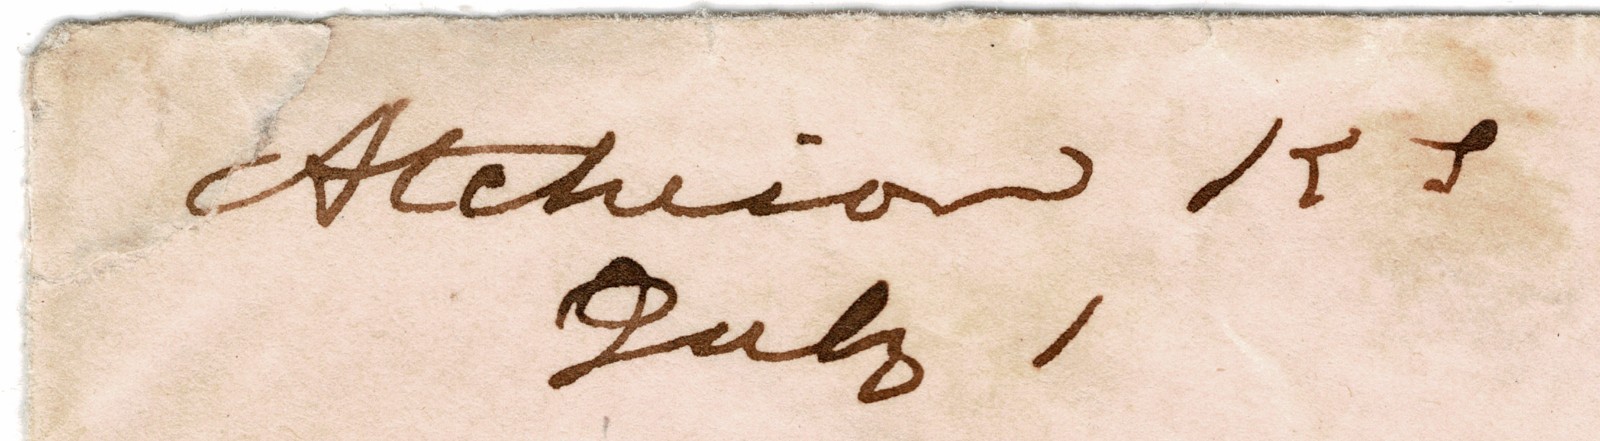 Atchison KS
July 1